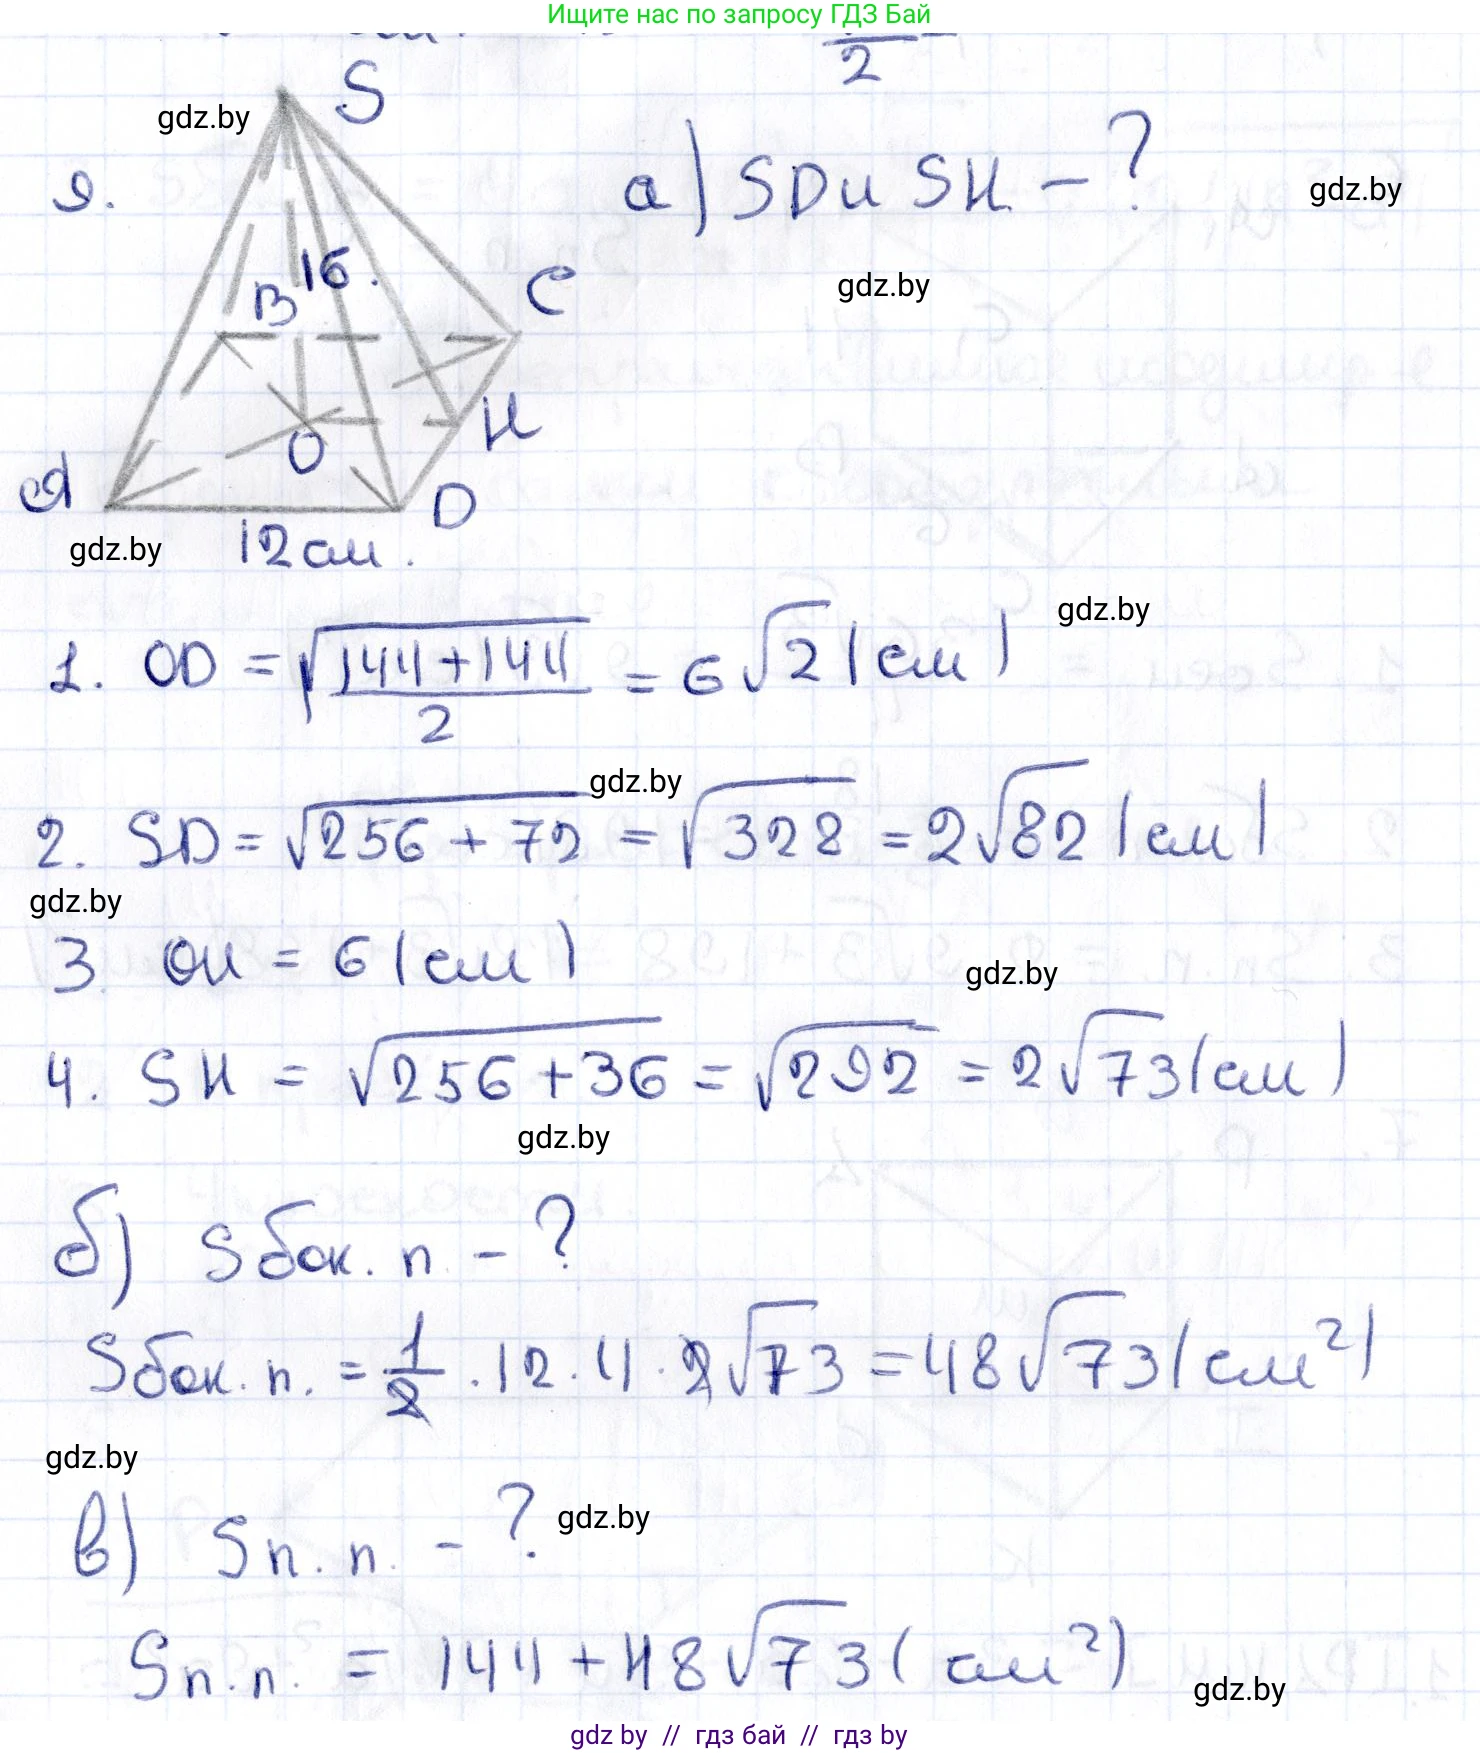 Ищите нас по запросу ГДЗ Бай
2
S
gdz.by
9.
а) SD и SH - ?
gdz.by
16.
B
C
gdz.by
H
O
A
D
gdz.by
12 см.
gdz.by
1. OD = √(144+144)/2 = 6√2 (см)
gdz.by
2. SD = √256 + 72 = √328 = 2√82 (см)
gdz.by
3. OH = 6 (см)
gdz.by
4. SH = √256 + 36 = √292 = 2√73 (см)
gdz.by
б) Sбок. п - ?
Sбок. п. = 1/2 · 12 · 4 · 2√73 = 48√73 (см²)
gdz.by
в) Sп. п. - ?
gdz.by
Sп. п. = 144 + 48√73 (см²)
gdz.by
gdz by // гдз бай // гдз by